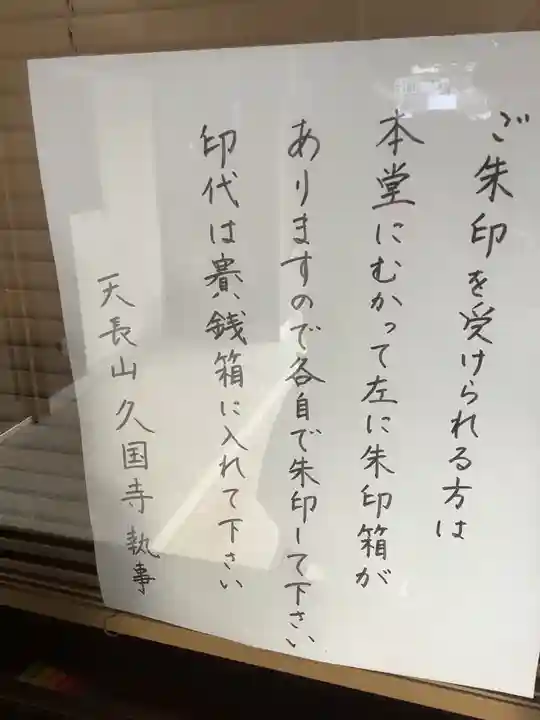 ご朱印を受けられる方は
本堂にむかって左に朱印箱が
ありますので各自で朱印して下さい
印代は賽銭箱に入れて下さい
天長山久国寺執事